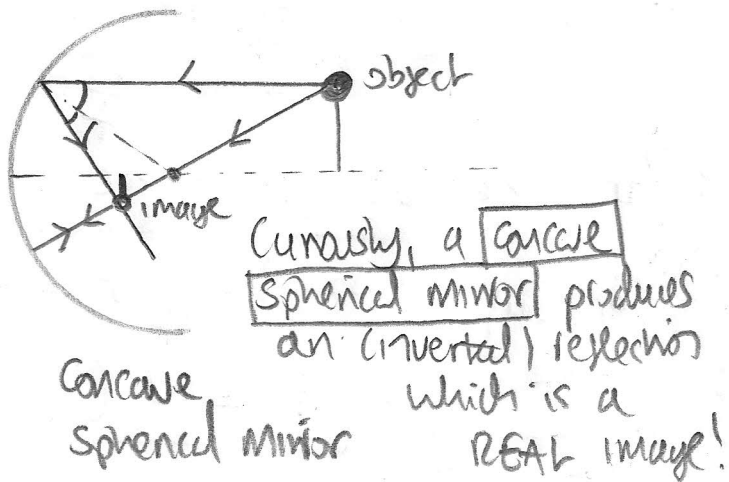 object
image
Curiously, a concave
spherical mirror produces
an (inverted) reflection
which is a
REAL image!
Concave
Spherical Mirror